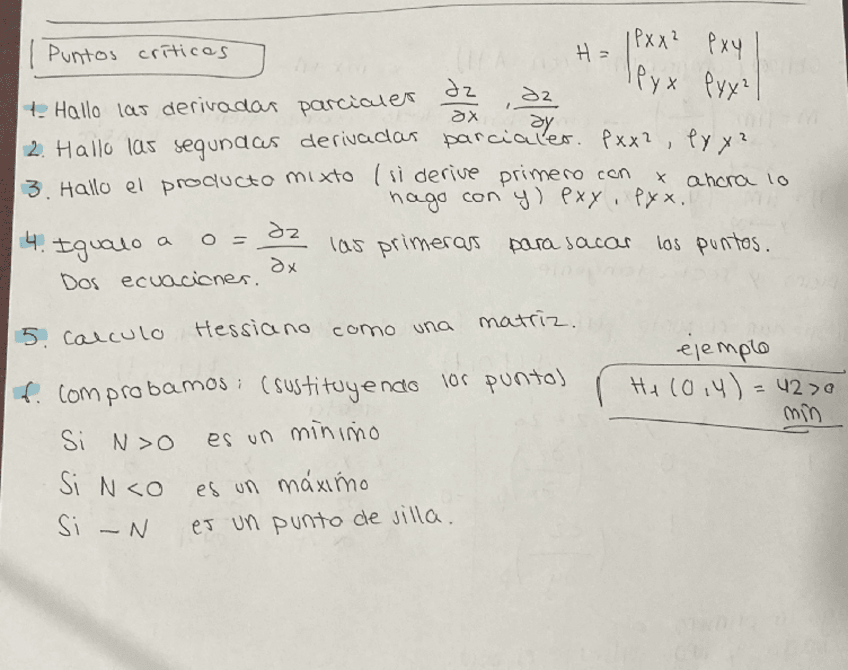 Puntos críticos
H = |ρxx² ρxy|
|ρyx ρyx²|
1. Hallo las derivadas parciales ∂z/∂x , ∂z/∂y
2. Hallo las segundas derivadas parciales. ρxx² , ρyx²
3. Hallo el producto mixto (si derive primero con x ahora lo
hago con y) ρxy, ρyx.
4. Igualo a 0 = ∂z/∂x las primeras para sacar los puntos.
Dos ecuaciones.
5. Calculo Hessiano como una matriz.
6. Comprobamos: (sustituyendo los punto)
ejemplo
H₁ (0,4) = 42>0
min
Si N>0 es un mínimo
Si N<0 es un máximo
Si -N es un punto de silla.